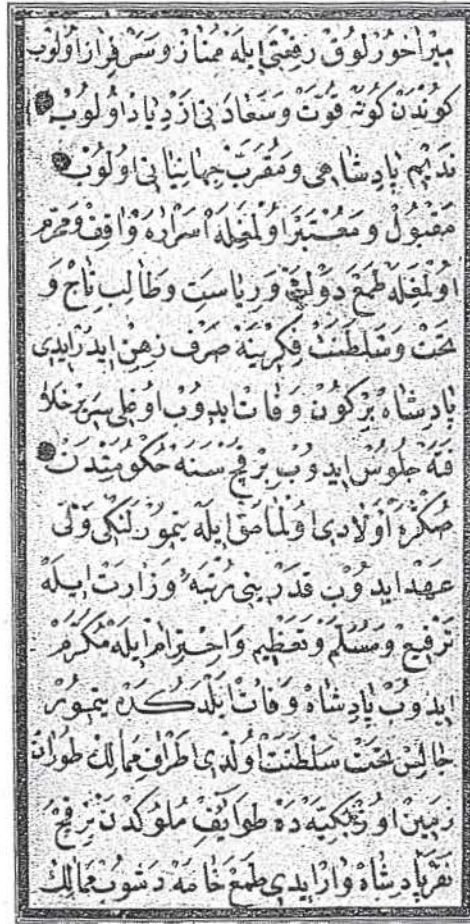 ميرآخورلوق رفعتى ايله ممتاز و سرفراز اولوب
كوندن كونه قوت و سعادتى ازدياد اولوب
نديم پادشاهى و مقرب جهانبانى اولوب
مقبول و معتبر اولمغله اسراره واقف و محرم
اولمغله طمع دولت و رياست و طالب تاج و
تخت و سلطنت فكرينه صرف ذهن ايدر ايدى
پادشاه بر كون وفات ايدوب اوغلى سرير خلا
فته جلوس ايدوب بر قچ سنه حكومتدن
صكره اولادى اولمامق ايله تيمورلنكى ولى
عهد ايدوب قدرينى رتبۀ وزارت ايله
ترفيع و مسلم و تعظيم و احترام ايله مكرم
ايدوب پادشاه وفات ايلدكده تيمور
جالس تخت سلطنت اولدى اطراف ممالك طوران
زمين اوزبكيه ده طوايف ملوكدن بر قچ
نفر پادشاه وار ايدى طمع خامه دشوب ممالك